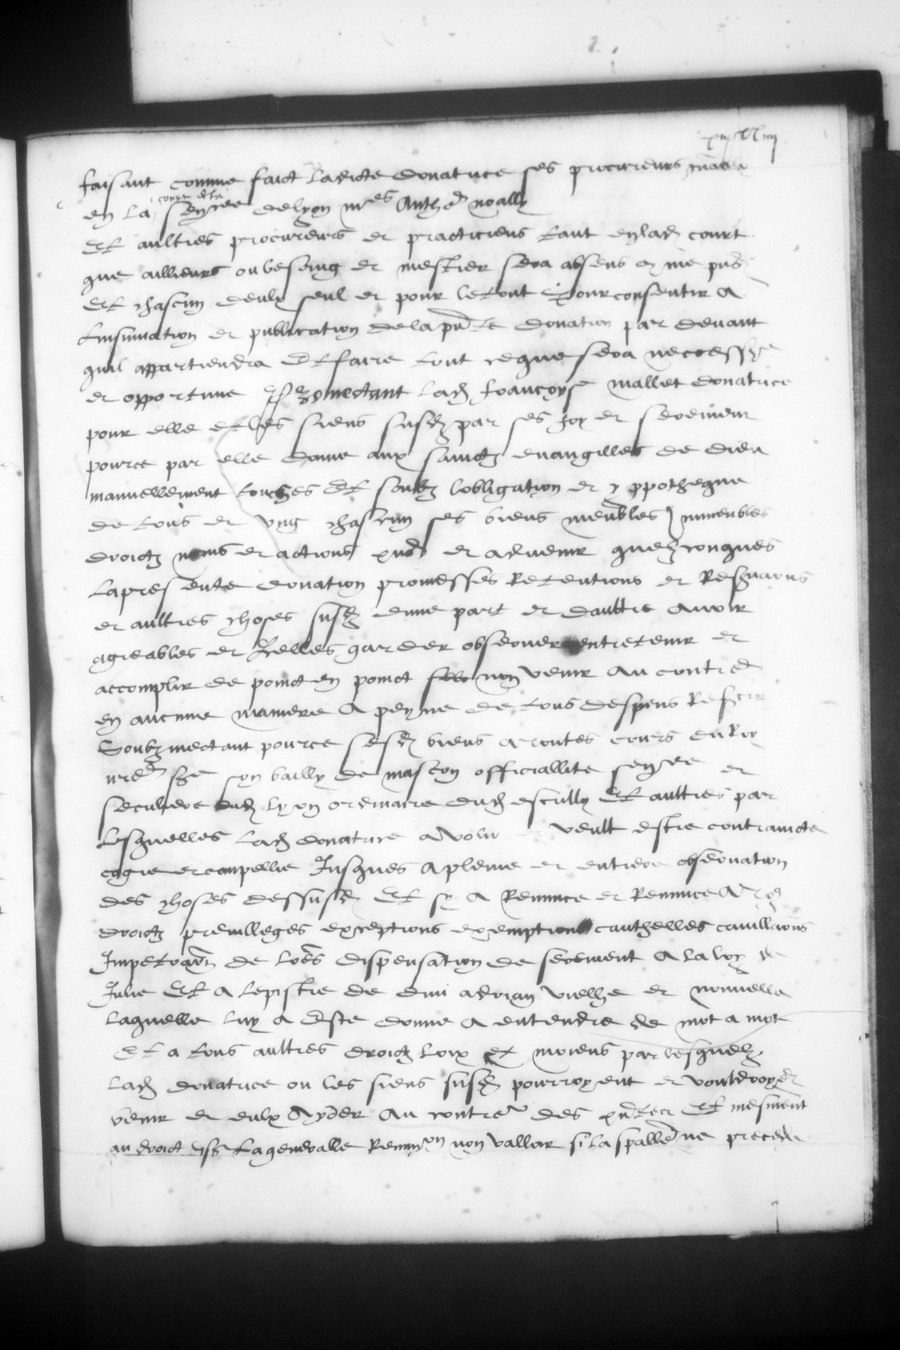 faisant comme faict ladicte donatrice ses procureurs
en la senee de lyon mes Anthe noally
Et aultres procureurs et practiciens tant en lad court
que ailleurs ou besoing et mestier sera absens
Et chascun deulx seul et pour le tout Pour consentir a
linsinuation et publication de la pnte donation par devant
quil appartiendra Et faire tout ce que sera necesse
et opportune Promectant lad francoyse mallet donatrice
pour elle et les siens susd par ses foy et serement
pource par elle donne aux sainctz evangilles de dieu
manuellement touches Et soubz lobligation et yppotheque
de tous et ung chascun ses biens meubles immeubles
droictz noms et actions pns et advenir quelzconques
la presente donation promesses Retentions et
et aultres choses susd dune part et daultre avoir
agreables et Icelles garder observer entretenir et
accomplir de poinct en poinct non venir au contre
en aucune maniere a peyne de tous despens
Soubzmectant pource sesd biens a toutes cours du Roy
nre sre son bailly de mascon officiallite senee et
seculiere dud lyon ordinaire dud escully Et aultres par
lesquelles lad donatrice a volu veult estre contraincte
cogie et compellie Jusques a pleine et entiere observation
des choses dessusd Et sy a Renunce et Renunce a
droictz previlleges exceptions exemptions cauthelles
Impetraon de lres dispensation de serement a la loy
Julie Et a lepistre de divi adrian vielhe et nouvelle
laquelle luy a este donne a entendre de mot a mot
Et a tous aultres droictz loix et moiens par lesquelz
lad donatrice ou les siens susd pourroyent et vouldroyet
venir et eulx Ayder au contre des pntes Et mesment
au droict dist la generalle Renunon non valloir si la spalle ne precede